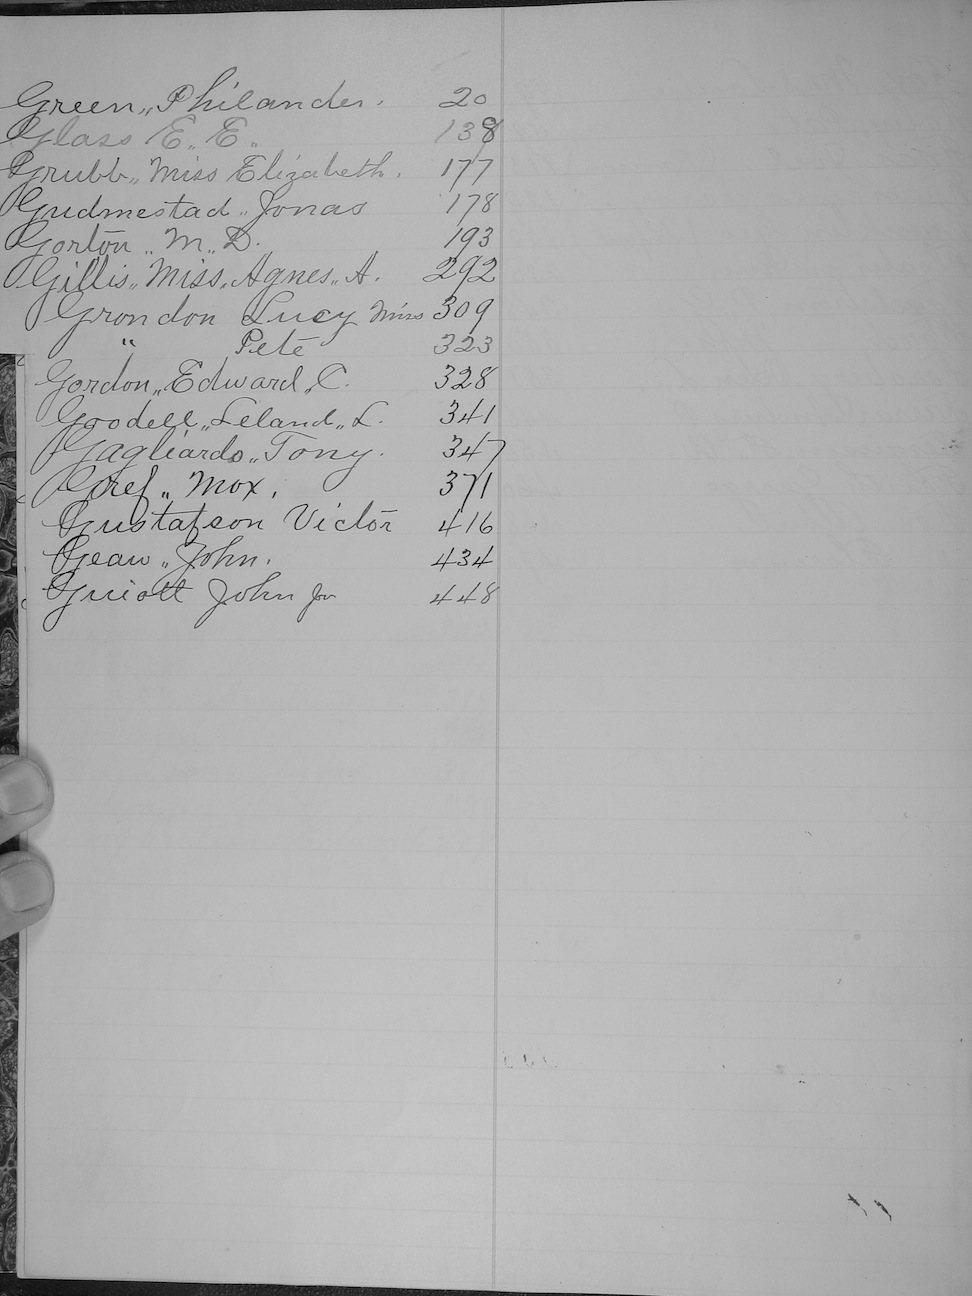 Green,, Philander. 20
Glass E.. E.. 138
Grubb,, Miss Elizabeth. 177
Gudmestad,, Jonas 178
Gorton ,, M.. D. 193
Gillis,, Miss,, Agnes,, A. 292
Grondon Lucy Miss 309
" Pete 323
Gordon,, Edward,, C. 328
Goodell,, Leland,, L. 341
Gagliardo,, Tony. 347
Gref ,, Mox. 371
Gustafson Victor 416
Geau ,, John. 434
Guiott John Jr 448